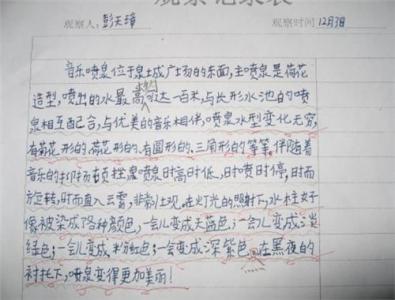 观察记录表
观察人:彭天璋 观察时间12月3日
音乐喷泉位于泉城广场的东面,主喷泉是荷花
造型,喷出的水最高可达一百米,与长形水池的喷
泉相互配合,与优美的音乐相伴,喷泉水型变化无穷,
有菊花形的,荷花形的,有圆形的、三角形的等等。伴随着
音乐的抑扬顿挫,喷泉时高时低,时喷时停,时而
方旋转,时而直入云霄,非常壮观。在灯光的照射下,水柱好
像被染成了各种颜色,一会儿变成天蓝色,一会儿变成淡
绿色;一会儿变成粉红色;一会变成深紫色。在黑夜的
衬托下,喷泉变得更加美丽!